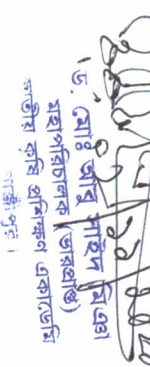 ড. মোঃ আবু সাইদ মিঞা
মহাপরিচালক (ভারপ্রাপ্ত)
জাতীয় কৃষি প্রশিক্ষণ একাডেমি
গাজীপুর।